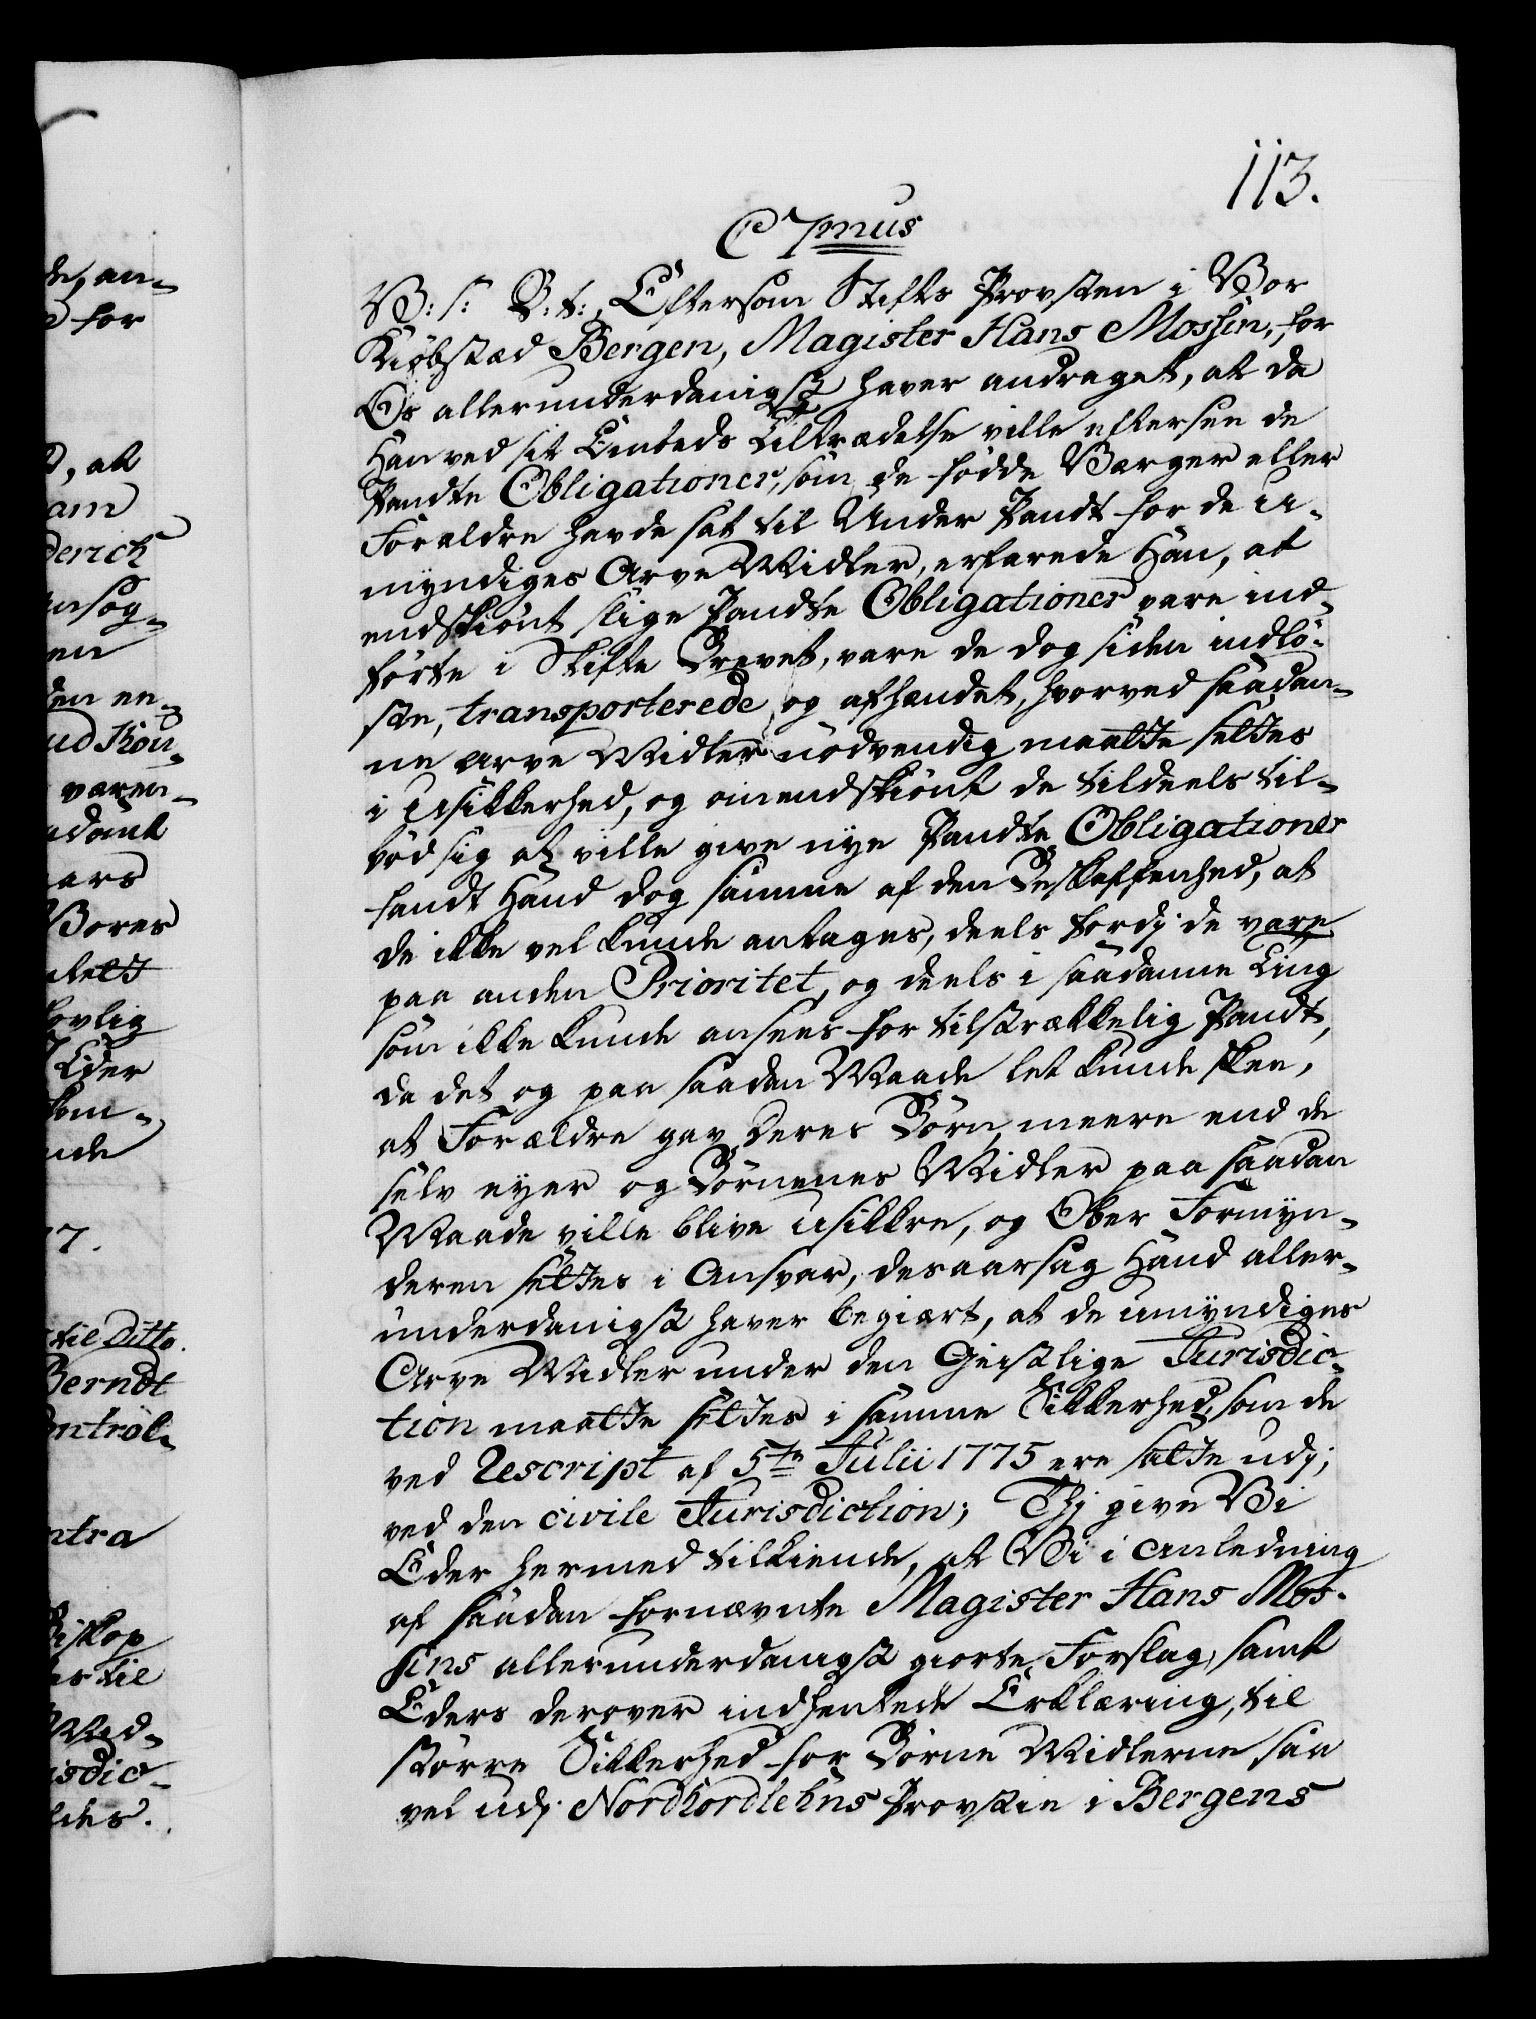 113.
C7mus
V: S: G: t:, Eftersom Stifts Provsten i Vor
Kiøbstæd Bergen, Magister Hans Mossin, for
Os allerunderdanigst haver andraget, at da
Han ved sit Embeds Tiltrædelse ville eftersee de
Pandte Obligationer, som de fødde Værger eller
Forældre havde sat til Under Pandt for de u-
myndiges Arve Midler, erfarede Han, at
endskiønt slige Pandte Obligationer vare ind-
førte i Skifte Brevet, vare de dog siden indlø-
ste, transporterede og afhændet, hvorved saadan-
ne Arve Midler nødvendig maatte settes
i Usikkerhed, og omendskiønt de tildeels til-
bød sig at ville give nye Pandte Obligationer
fandt Hand dog samme af den Beskaffenhed, at
de ikke vel kunde antages, deels fordj de vare
paa anden Prioritet, og deels i saadanne Ting
som ikke kunde ansees for tilstrækkelig Pandt,
da det og paa saadan Maade let kunde skee,
at Forældre gav deres Børn meere end de
selv eyer og Børnenes Midler paa saadan
Maade ville blive usikkre, og Ober Formyn-
deren settes i Ansvar, desaarsag Hand aller-
underdanigst haver begiært, at de umyndiges
Arve Midler under den Geistlige Jurisdic-
tion maatte settes i samme Sikkerhed, som de
ved Rescript af 5te Julii 1775 ere satte udj;
ved den civile Jurisdiction; Thj give Vi
Eder hermed tilkiende, at Vi i Anledning
af saadan fornævnte Magister Hans Mos-
sins allerunderdanigst giorte Forslag, samt
Eders derover indhentede Erklæring, til
større Sikkerhed for Børne Midlerne saa
vel udj Nordhordlehns Provstie i Bergens